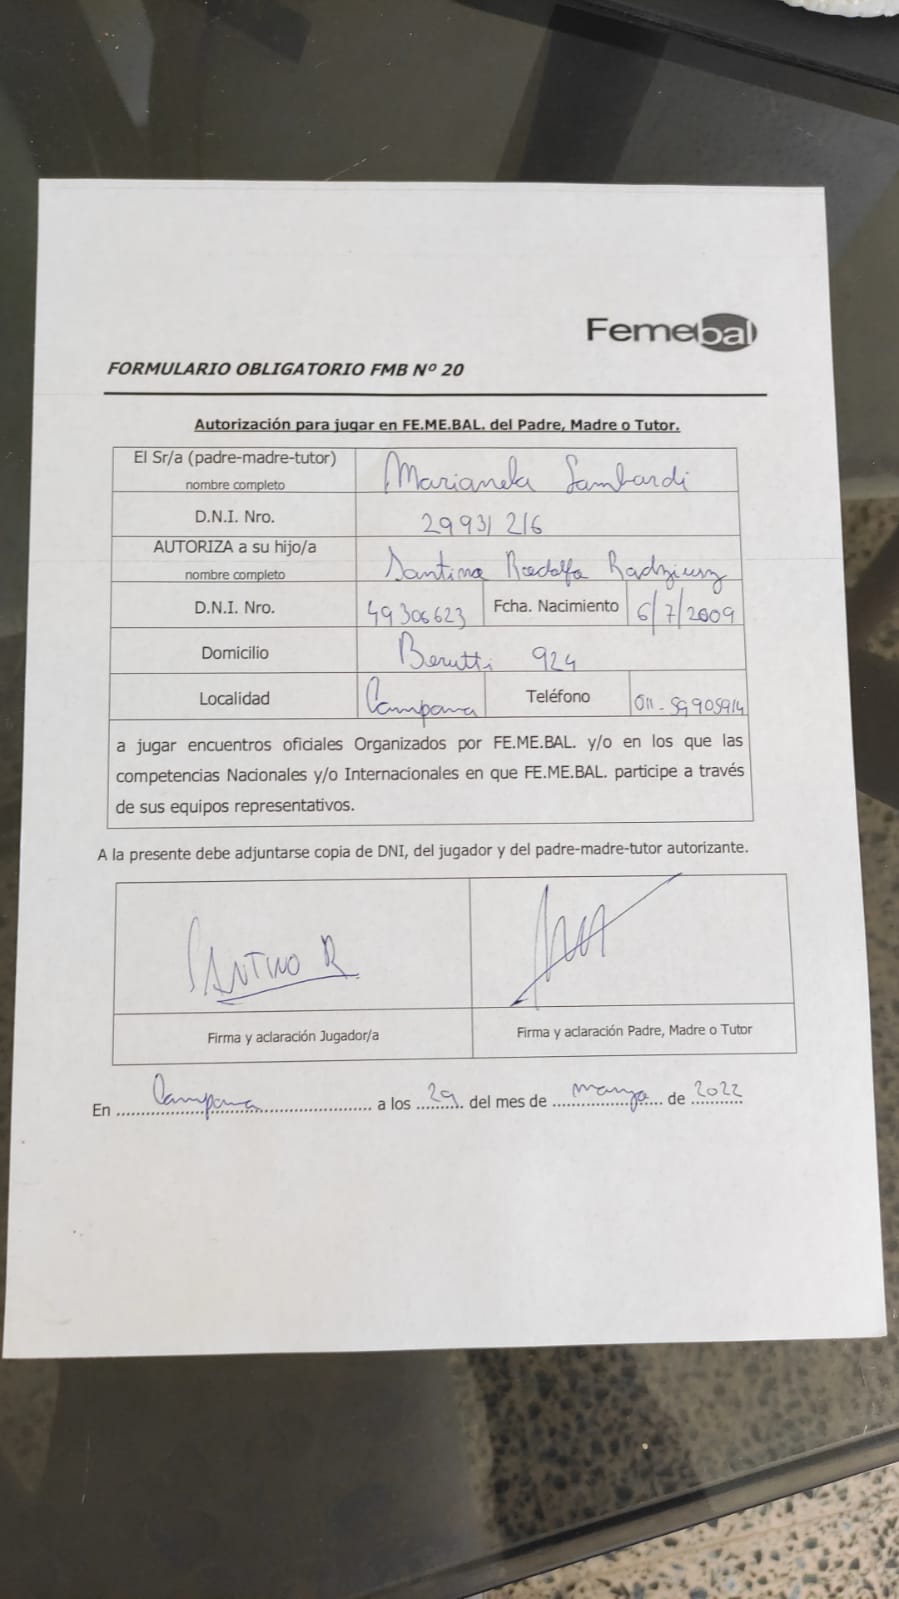 Femebal
FORMULARIO OBLIGATORIO FMB Nº 20
Autorización para jugar en FE.ME.BAL. del Padre, Madre o Tutor.
El Sr/a (padre-madre-tutor) nombre completo Marianela Lambardi
D.N.I. Nro. 29931216
AUTORIZA a su hijo/a nombre completo Santino Rodolfo Radziusz
D.N.I. Nro. 49306623 Fcha. Nacimiento 6/7/2009
Domicilio Berutti 924
Localidad Campana Teléfono 011-59905914
a jugar encuentros oficiales Organizados por FE.ME.BAL. y/o en los que las
competencias Nacionales y/o Internacionales en que FE.ME.BAL. participe a través
de sus equipos representativos.
A la presente debe adjuntarse copia de DNI, del jugador y del padre-madre-tutor autorizante.
SANTINO R
Firma y aclaración Jugador/a Firma y aclaración Padre, Madre o Tutor
En Campana a los 29 del mes de marzo de 2022